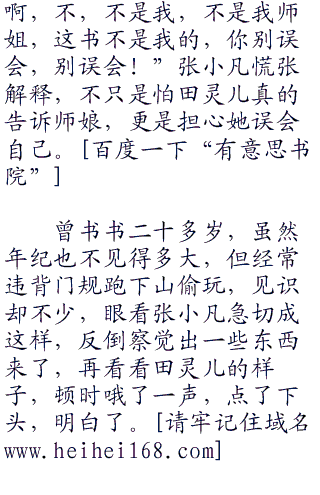 啊，不，不是我，不是我师
姐，这书不是我的，你别误
会，别误会！”张小凡慌张
解释，不只是怕田灵儿真的
告诉师娘，更是担心她误会
自己。[百度一下“有意思书
院”]
曾书书二十多岁，虽然
年纪也不见得多大，但经常
违背门规跑下山偷玩，见识
却不少，眼看张小凡急切成
这样，反倒察觉出一些东西
来了，再看看田灵儿的样
子，顿时哦了一声，点了下
头，明白了。[请牢记住域名
www.heihei168.com]